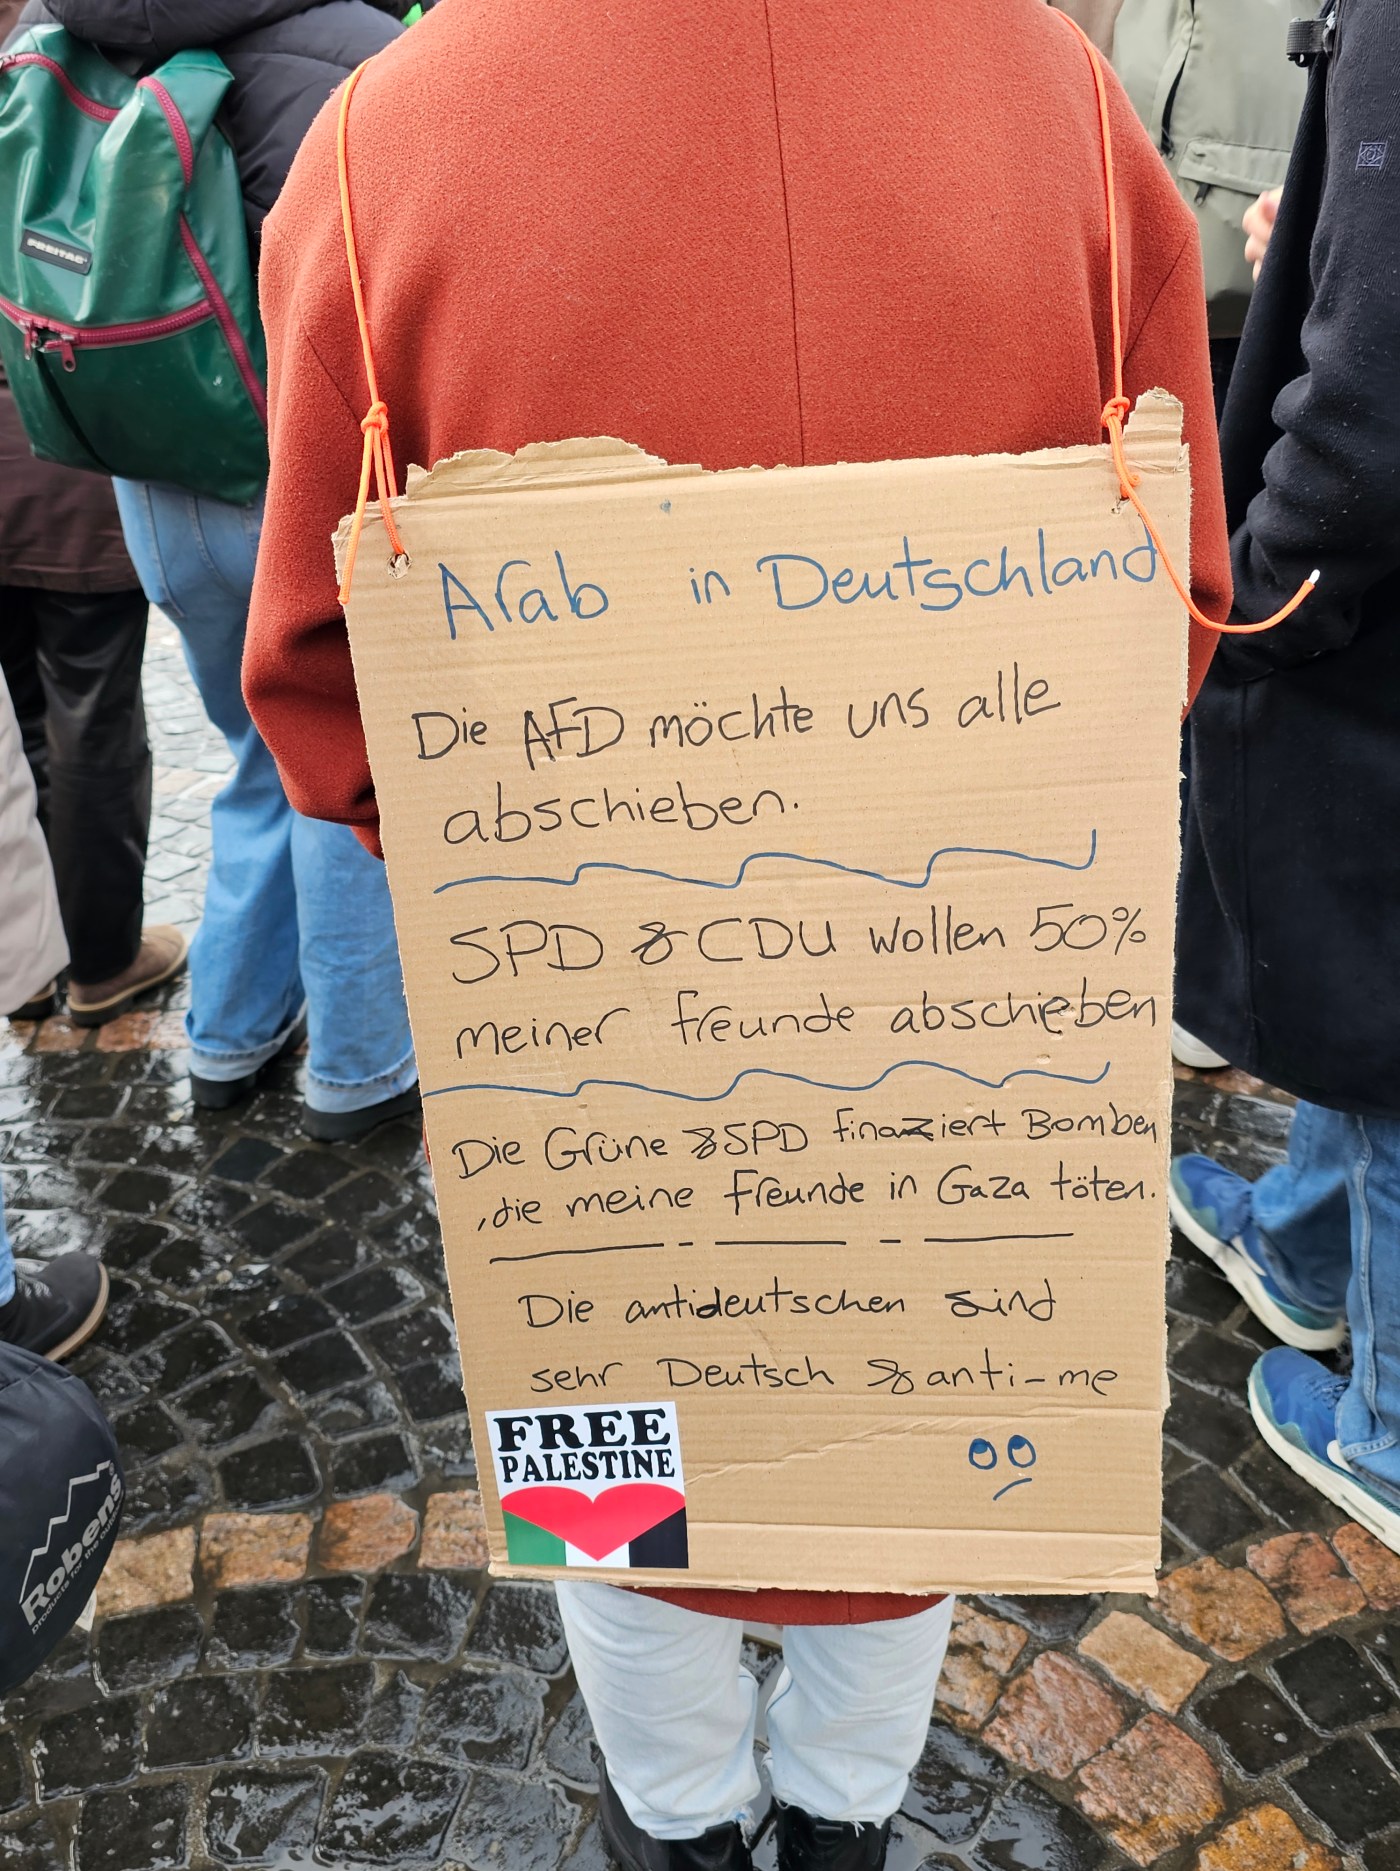 FREITAG
Arab in Deutschland
Die AFD möchte uns alle
abschieben.
SPD & CDU wollen 50%
meiner freunde abschieben
Die Grüne & SPD finanziert Bomben
, die meine freunde in Gaza töten.
Die antideutschen sind
sehr Deutsch & anti-me
FREE
PALESTINE
Robens
products for the outdoor